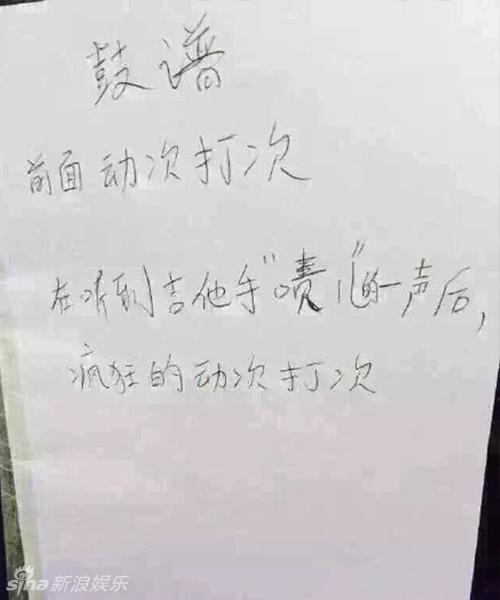 鼓谱
前面动次打次
在听到吉他手"啧儿"的一声后,
疯狂的动次打次
sina新浪娱乐